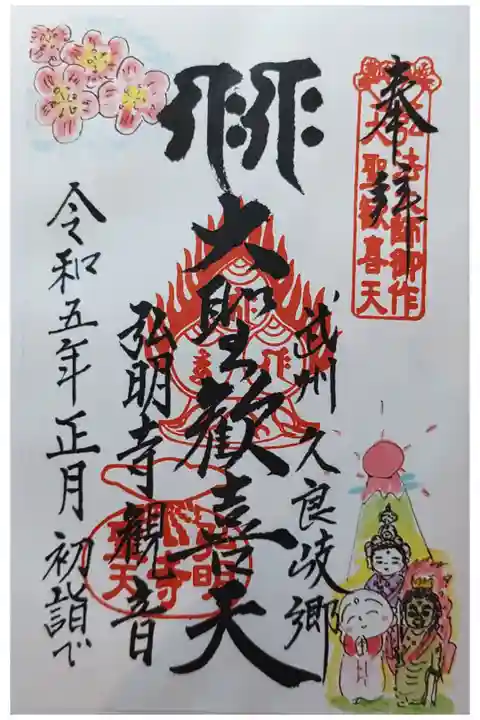 奉拝
弘法大師御作
大聖歓喜天
武州久良岐郷
大聖歓喜天
弘明寺観音
令和五年正月初詣で